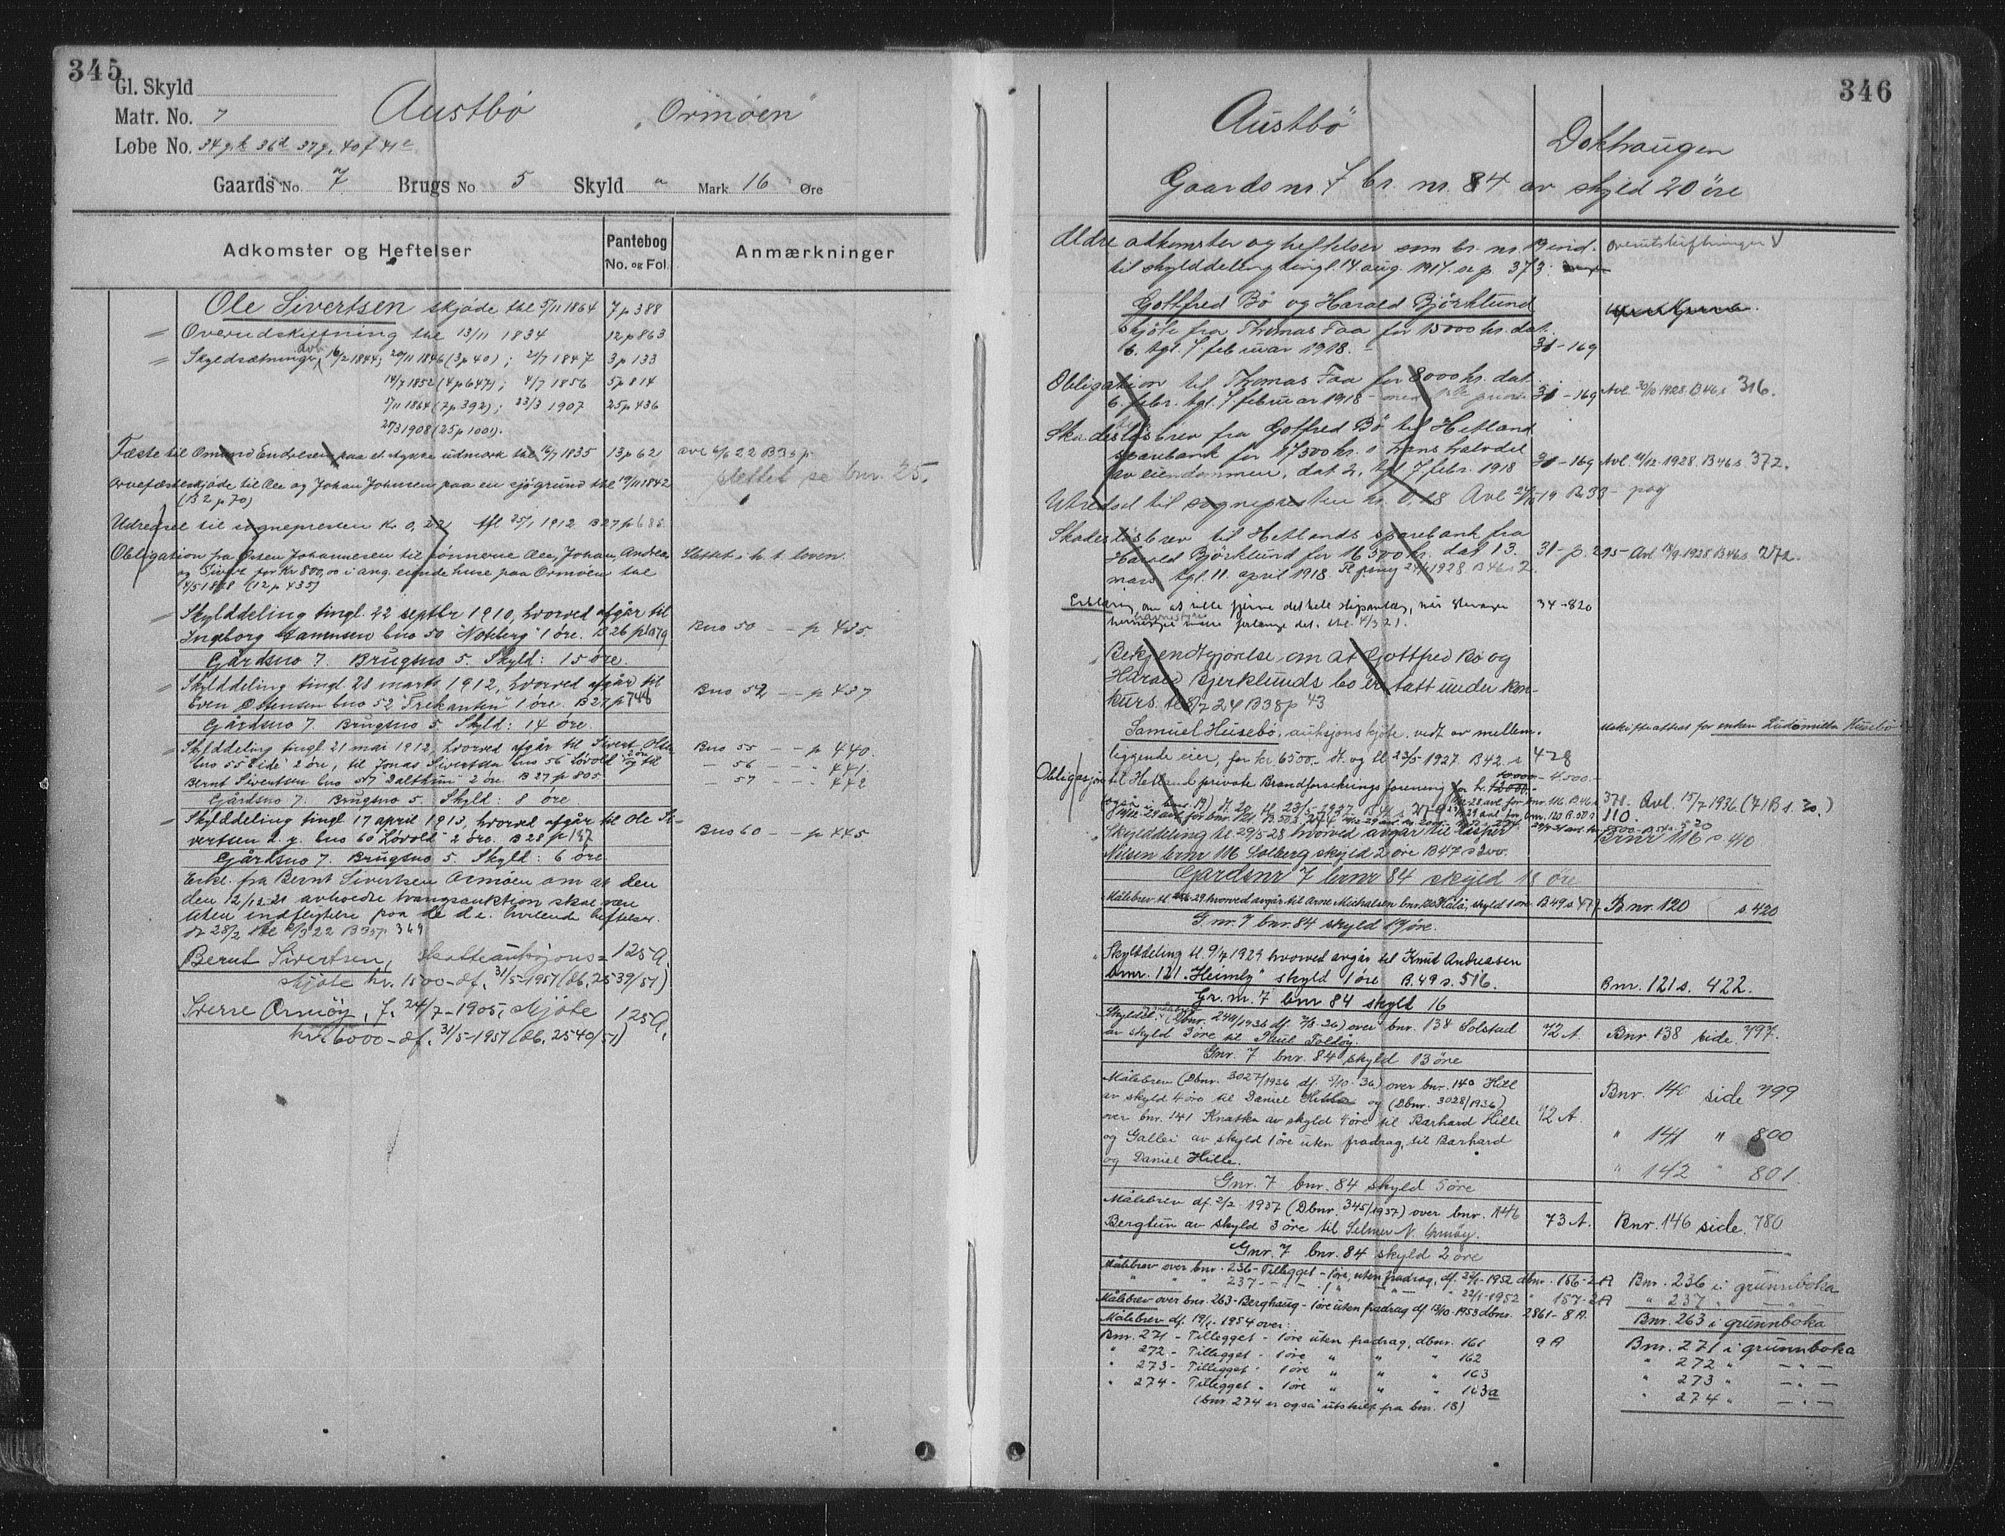 345
Gl. Skyld
Matr. No. 7
Løbe No. 34g,h 36d 37g, 40f 41c
Austbø "Ormøen"
Gaards No. 7 Brugs No 5 Skyld " Mark 16 Øre
Adkomster og Heftelser
Pantebog
No. og Fol.
Anmærkninger
Ole Sivertsen skjøde thl 5/11 1864 7 p 388
Overudskiftning thl 13/11 1834 12 p 863
Skyldsætninger 16/2 1844; 20/11 1846 (3 p 40); 2/7 1847 3 p 133
14/7 1852 (4 p 647); 4/7 1856 5 p 814
5/11 1864 (7 p 392); 23/3 1907 25 p 436
27/3 1908 (25 p 1001).
Fæste til Omund Endresen paa et stykke udmark thl 1835 13 p 62 avl 6/6 22 B 35 p
slettet se bnr. 25.
Arvefæsteskjøde til Ole og Johan Johnsen paa en sjøgrund thl 19/11 1842
(B 2 p 70)
Udredsel til sognepresten Kr 0,22 Afl 25/1 1912 B 27 p 685
Obligation fra Johannesen til sønnerne Ole, Johan, Andrea Slettet i h. t. loven.
og Sivert for Kr 800,00 i ang. eiende huse paa Ormøen thl
14/5 1868 (12 p 435)
Skylddeling tingl. 22 septbr 1910, hvorved afgår til
Ingeborg bno 50 "Notberg" 1 øre. B 26 p 1079 Bno 50 — — p 435
Gårdsno 7. Brugsno 5. Skyld: 15 øre.
Skylddeling tingl 28 marts 1912, hvorved afgår til Bno 52 — — p 437
Even Østensen bno 52 "Trekanten" 1 øre. B 27 p 748
Gårdsno 7. Brugsno 5. Skyld: 14 øre.
Skylddeling tingl 21 mai 1912, hvorved afgår til Sivert Olsen Bno 55 — — p 440
bno 55 "Lide" 2 øre, til Jonas Sivertsen bno 56 "Løvold" 2 øre og til — 56 — — " 441
Bernt Sivertsen bno 57 "Dalthun" 2 øre. B 27 p 805 — 57 — — " 442
Gårdsno 7. Brugsno 5. Skyld: 8 øre.
Skylddeling tingl 17 april 1913, hvorved afgår til Ole Si-
vertsen d. y. bno 60 "Løvold" 2 øre. B 28 p 187 Bno 60 — — p 445
Gårdsno 7. Brugsno 5. Skyld: 6 øre.
Erkl. fra Bernt Sivertsen Ormøen om at den
den 12/12-21 avholdte tvangsauktion skal være
uten indflytelse paa de d. e. hvilende heftelser.
dt 28/2 thl 6/3 22 B 35 p. 349
Bernt Sivertsen, skatteauksjons- 125 A.
skjøte kr. 1500- df. 31/5-1957 (db. 2539/57)
Sverre Ormøy, f. 24/7-1905, skjøte 125 A.
kr. 6000- df. 31/5-1957 (db. 2540/57)
346
Austbö Dokhaugen
Gaards nr. 7 br. nr. 84 av skyld 20 öre
Ældre adkomster og heftelser som br. nr. 19 ind- Overutskiftninger
til skylddeling tingl. 14. aug. 1917. se p. 373.
Gottfred Bö og Harald Björklund
skjöte fra Thomas Faa for 15000 kr. dat.
6. tgl. 7. februar 1918. 31 - 169
Obligation til Thomas Faa for 8000 kr. dat.
6. febr. tgl. 7. februar 1918 31 - 169 Avl. 30/ 1928. B 46 s. 316.
Skadeslösbrev fra Gotfred Bö til Hetland
sparebank for 17500 kr. i hans halvdel
av eiendommen, dat. 2, tgl 7 febr. 1918 31 - 169 Avl. 11/12 1928. B 46 s. 372.
Utredsel til sognepresten kr. 0,18 Avl 19 B 33 - pag
Skadeslösbrev til Hetlands sparebank fra
Harald Björklund for 16500 kr. dat. 13. 31 - p. 295 - Avl. 1928 B 46 s. 272.
mars tgl. 11. april 1918. 1928 B 46 s 2.
Erklæring, om at ville fjerne det hele slipanlæg, når Stavanger 34-820
havnestyre måtte forlange det. thl. 4/3 21.
Bekjendtgjørelse om at Gottfred Bø og
Harald Bjerklunds bo er tatt under kon-
kurs. tl. 8/7 24 B 38 p 43
Samuel Husebö, auksjonskjöte, vedt. av mellem- Uskifteattest for enken Ludomilla Husebö
liggende eier, for kr. 6500.- dt. og tl 23/5 1927. B 42. s. 428
Obligasjon til Hetland private Brandforsikrings forening for kr. 12000.- 10000.- 4500.-
378. Avl. 15/7 1936 (71 B s. 30.)
110.
Skylddeling tl 29/5 28 hvorved avgår til Kasper
Nilsen brnr 116 Solberg skyld 2 öre B 47 s 200. Brnr 116 s. 410
Gardsnr 7 brnr 84 skyld 18 öre
Målebrev tl 29 hvorved avgår til Arne Michalsen bnr. 120, skyld 1 öre. B 49 s 477 Bnr. 120 s. 420
Gnr. 7 bnr. 84 skyld 17 öre.
Skylddeling tl. 9/7 1929 hvorved avgår til Knut Andreasen
bnr. 121 "Heimly" skyld 1 öre B. 49 s. 516. Bnr. 121 s. 422.
Gr. nr. 7 bnr 84 skyld 16
(Dbnr. 244/1936 df 7/3-36) over bnr. 138 Solstad 72 A. Bnr. 138 side. 797.
av skyld 3 öre til
Gnr. 7 bnr. 84 skyld 13 öre
Målebrev (Dbnr. 3027/1936 df. 5/10-36) over bnr. 140 Hill Bnr. 140 side 799
av skyld 4 öre til Daniel Hille og (Dbnr. 3028/1936)
over bnr. 141 Knatten av skyld 4 öre til Barhard Hille 72 A. " 141 " 800
og Gallei av skyld 1 öre uten fradrag, til Barhard
og Daniel Hille. " 142 " 801.
Gnr. 7 bnr. 84 skyld 5 öre
Målebrev df 2/2 1937 (Dbnr. 345/1937) over bnr. 146 73 A. Bnr. 146 side. 780
Bergtun av skyld 3 öre til Selmer N. Ormöy.
Gnr. 7 bnr. 84 skyld 2 öre
Målebrev over bnr. 236 - Tillegget - 1 öre, uten fradrag, df. 22/1-1952 dbnr. 156-2 A Bnr. 236 i grunnboka
" " " 237 - — - 1 " " — " — 22/1-1952 " 157-2 A " 237 " — " —
Målebrev over bnr. 263 - Berghaug - 1 öre uten fradrag df 13/10-1953 dbnr. 2861 - 8 A Bnr. 263 i grunnboka
Målebrev df. 19/1-1954 over:
Bnr. 271 - Tillegget - 1 öre uten fradrag, dbnr. 161 9 A Bnr. 271 i grunnboka
" 272 - Tillegget - 1 öre " " " 162 " 272 " — " —
" 273 - Tillegget " 1 öre " " " 163 " 273 " — " —
" 274 - Tillegget " 1 öre " " " 163a " 274 " — " —
(bnr. 274 er også utskilt fra bnr. 18)